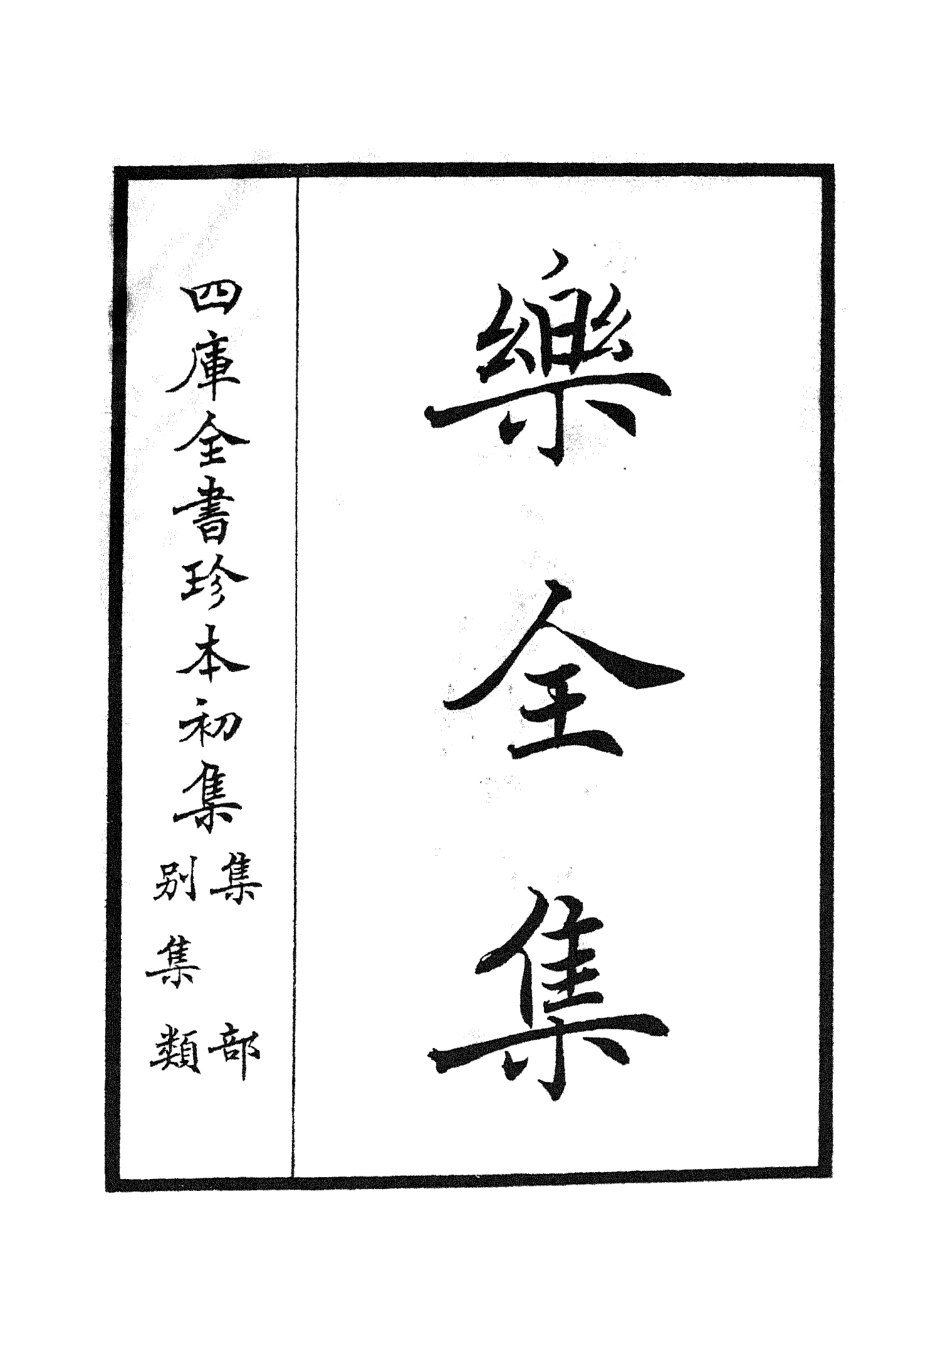 樂全集
四庫全書珍本初集
集部
別集類